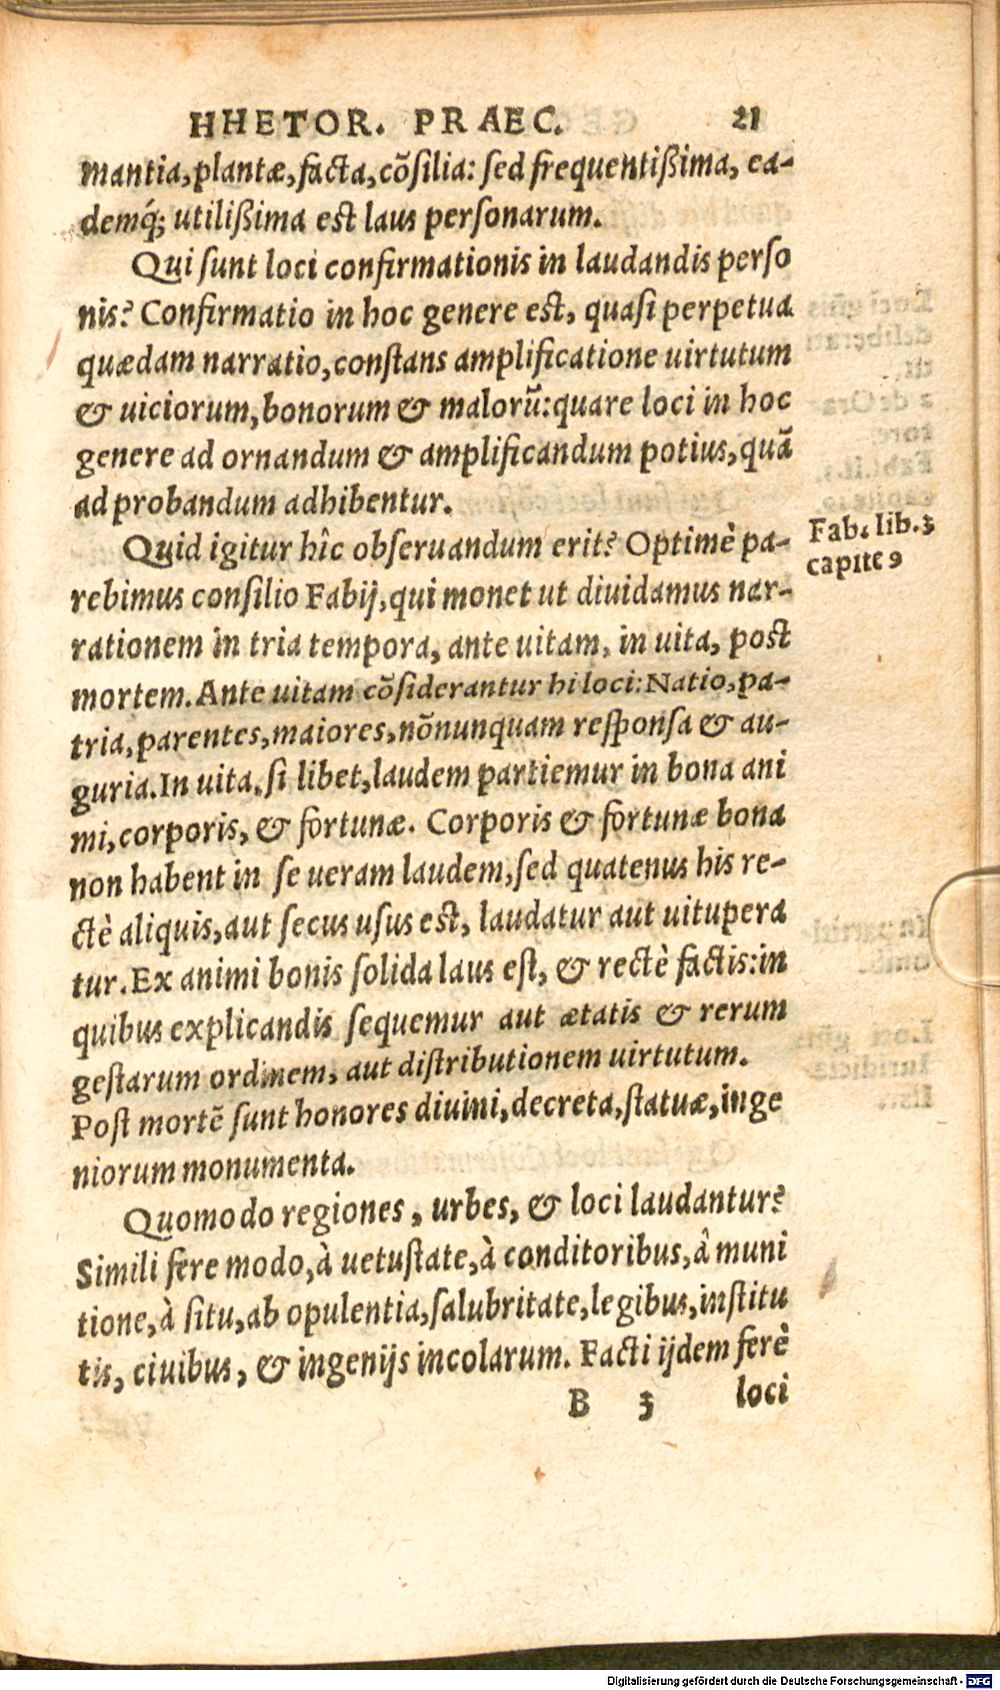 HHETOR. PRAEC. 21
mantia, plantæ, facta, cõsilia: sed frequentißima, ea-
demq́; utilißima est laus personarum.
Qui sunt loci confirmationis in laudandis perso
nis? Confirmatio in hoc genere est, quasi perpetua
quædam narratio, constans amplificatione uirtutum
& uiciorum, bonorum & malorũ: quare loci in hoc
genere ad ornandum & amplificandum potius, quã
ad probandum adhibentur.
Quid igitur hîc obseruandum erit? Optimè pa-
Fab. lib. 3
capite 9
rebimus consilio Fabij, qui monet ut diuidamus nar-
rationem in tria tempora, ante uitam, in uita, post
mortem. Ante uitam cõsiderantur hi loci: Natio, pa-
tria, parentes, maiores, nõnunquam responsa & au-
guria. In uita, si libet, laudem partiemur in bona ani
mi, corporis, & fortunæ. Corporis & fortunæ bona
non habent in se ueram laudem, sed quatenus his re-
ctè aliquis, aut secus usus est, laudatur aut uitupera
tur. Ex animi bonis solida laus est, & rectè factis: in
quibus explicandis sequemur aut ætatis & rerum
gestarum ordinem, aut distributionem uirtutum.
Post mortẽ sunt honores diuini, decreta, statuæ, inge
niorum monumenta.
Quomodo regiones, urbes, & loci laudantur?
Simili fere modo, à uetustate, à conditoribus, â muni
tione, à situ, ab opulentia, salubritate, legibus, institu
tis, ciuibus, & ingenijs incolarum. Facti ijdem ferè
B 3 loci
Digitalisierung gefördert durch die Deutsche Forschungsgemeinschaft - DFG